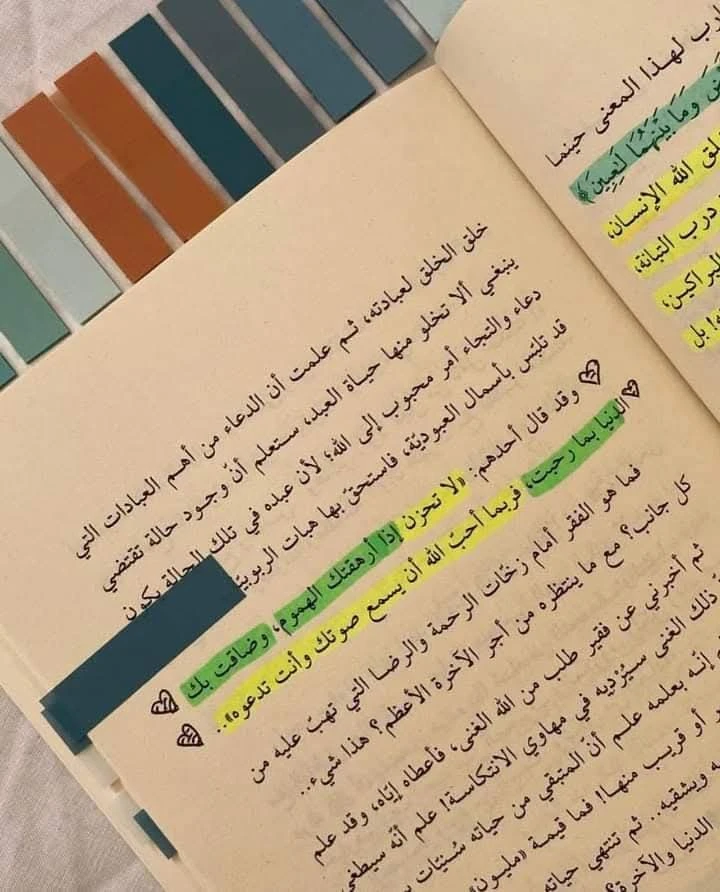 رب لهذا المعنى حينما
وَمَا بَيْنَهُمَا لَعِبِينَ﴾
لق الله الإنسان،
درب التبانة،
البراكين،
بل
خلق الخلق لعبادته، ثم علمت أن الدعاء من أهم العبادات التي
ينبغي ألا تخلو منها حياة العبد، ستعلم أنّ وجود حالة تقتضي
دعاء والتجاء أمر محبوب إلى الله؛ لأن عبده في تلك الحالة يكون
قد تلبّس بأسمال العبوديّة، فاستحقّ بها هبات الربوبيّة
وقد قال أحدهم: «لا تحزن إذا أرهقتك الهموم، وضاقت بك
الدنيا بما رحبت، فربما أحبّ الله أن يسمع صوتك وأنت تدعوه»..
فما هو الفقر أمام زخّات الرحمة والرضا التي تهبّ عليه من
كل جانب؟ مع ما ينتظره من أجر الآخرة الأعظم؟ هذا شيء..
ثم أخبرني عن فقير طلب من الله الغنى، فأعطاه إيّاه، وقد علم
ذلك الغنى سيُرْديه في مهاوي الانتكاسة! علم أنّه سيطغى
إنّه بعلمه علم أنّ المتبقي من حياته سُنيّات
أو قريب منها! فما قيمة «مليون»
ويشقيه.. ثم تنتهي حياته
الدنيا والآخرة؟